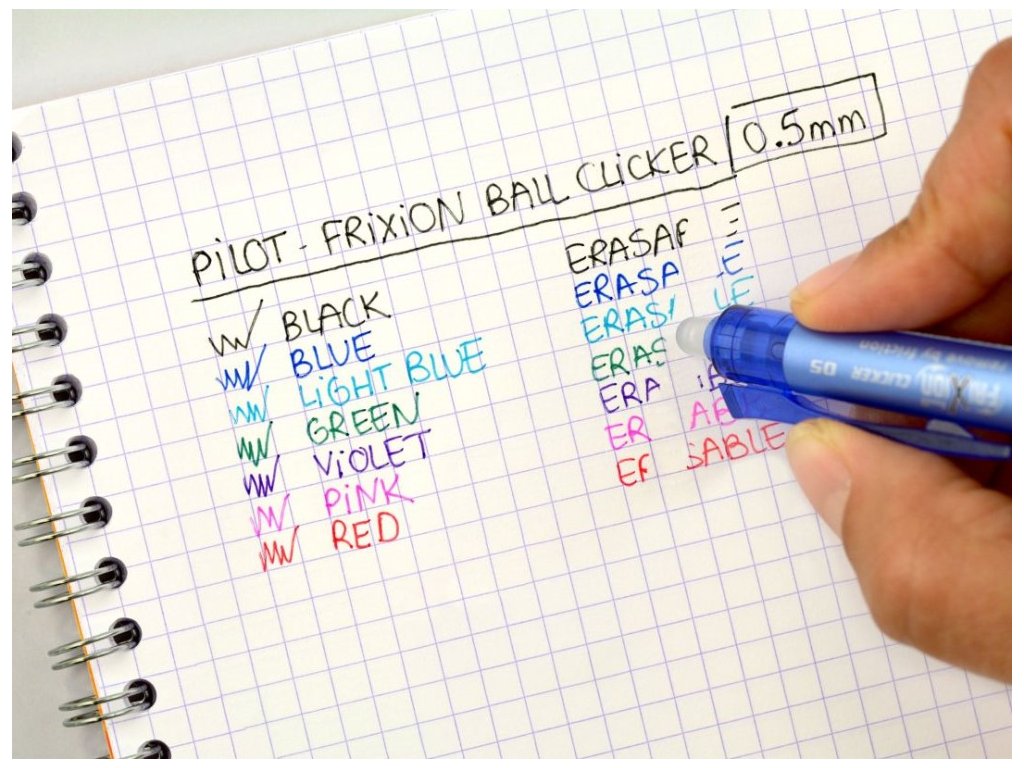 PiLOT - FRiXiON BALL CLiCKER 0.5mm
BLACK
BLUE
LiGHT BLUE
GREEN
ViOLET
PiNK
RED
ERASA E
ERASA LE
ERAS LE
ERAS
ERA
ER AB
ER SABLE
FRIXION CLICKER 05
Remove by friction